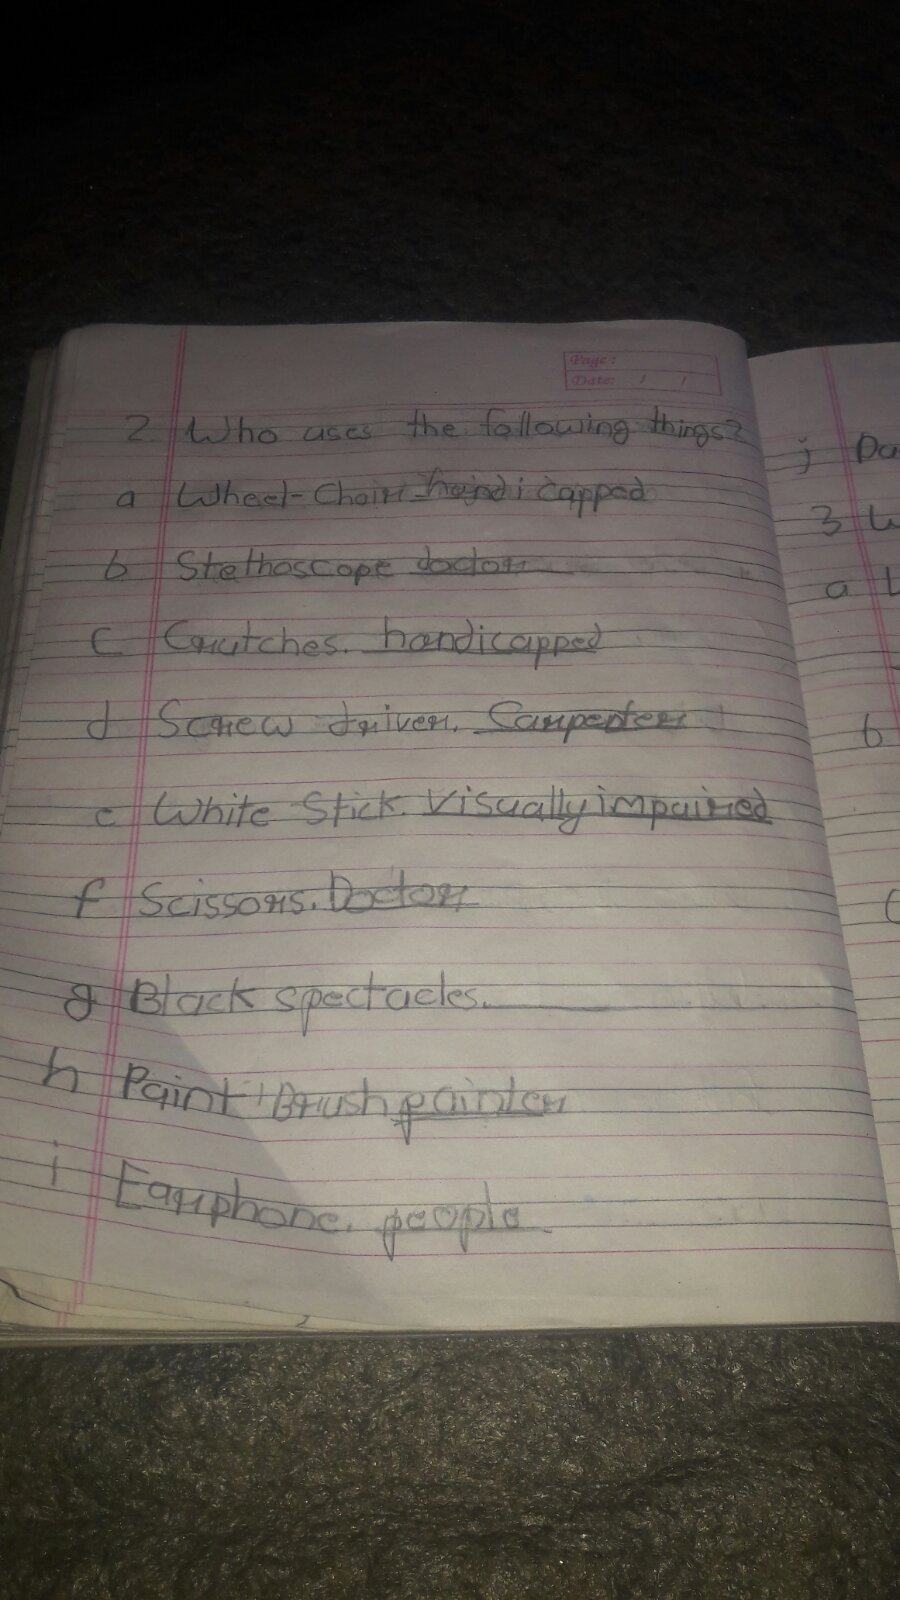 Page:
Date: / /
2 Who uses the following things?
a Wheel-Chair handicapped
b Stethoscope doctor
c Crutches. handicapped
d Screw driver. Carpenter
e White Stick. Visually impaired
f Scissors. Doctor
g Black spectacles.
h Paint Brush painter
i Earphone. people
j
3
a
b